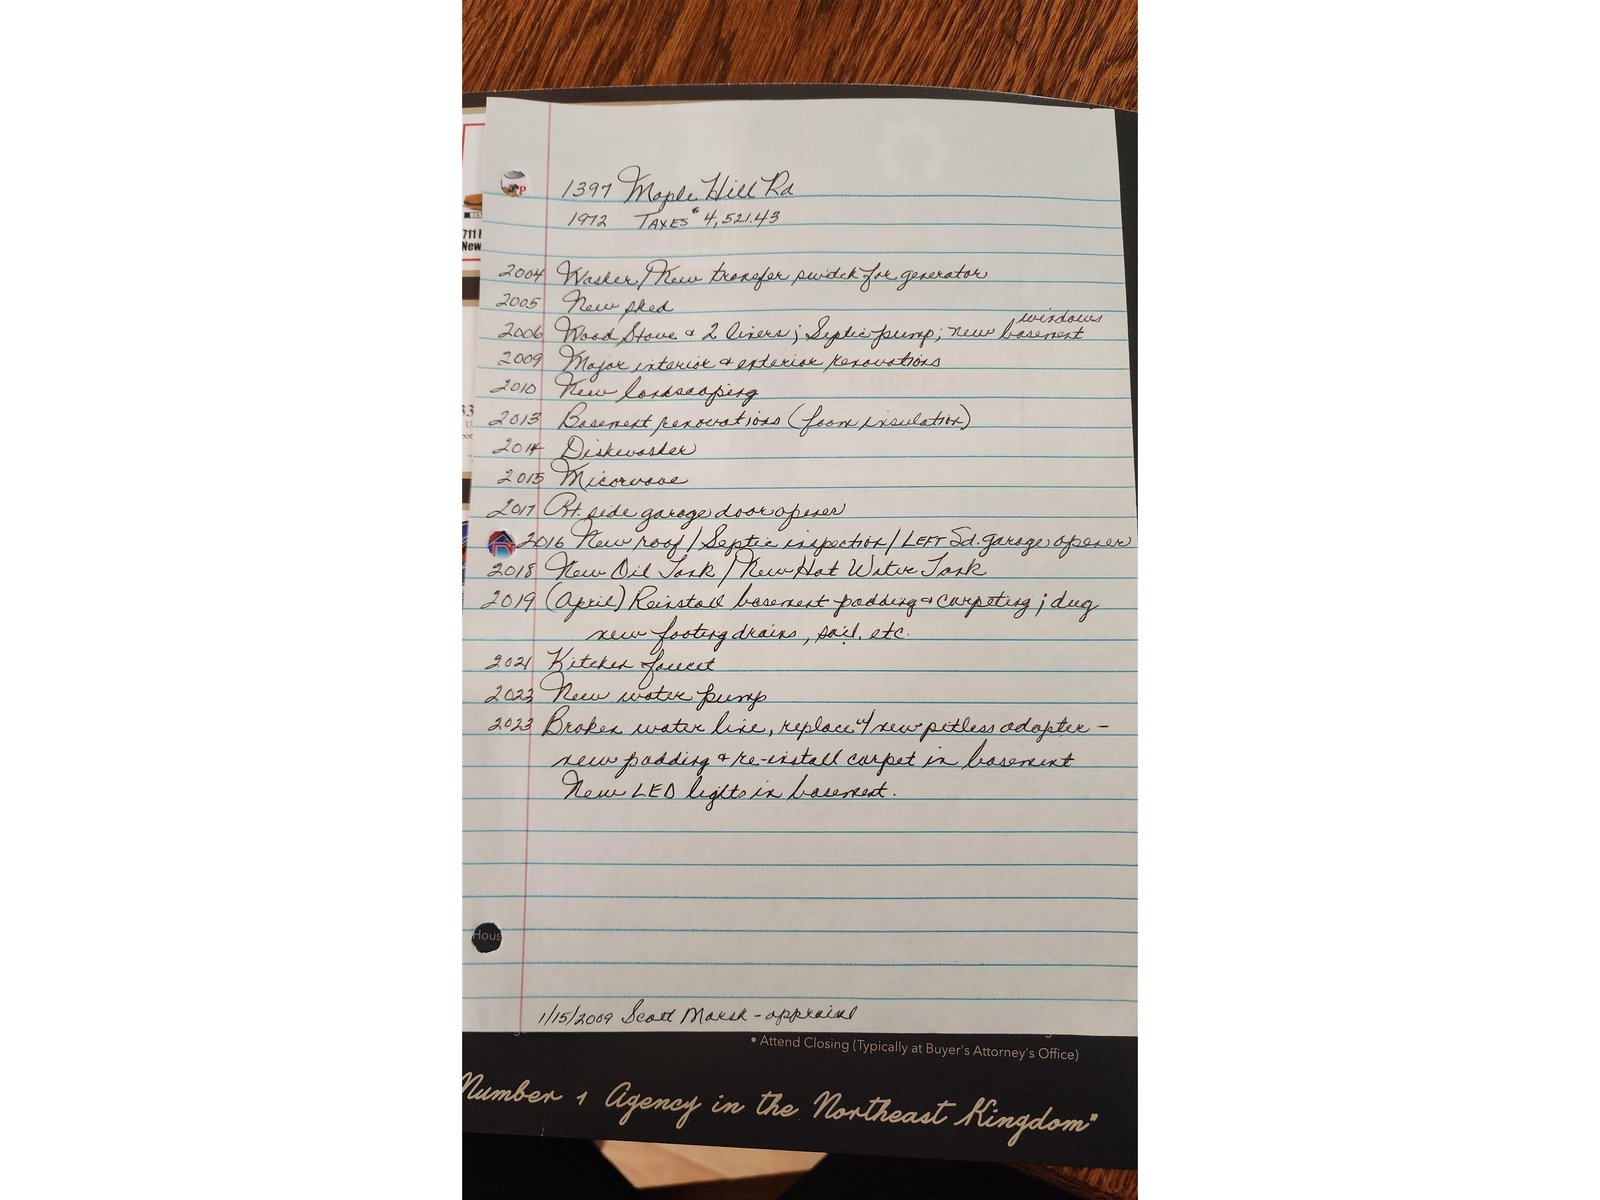 1397 Maple Hill Rd
1972 TAXES $4,521.43
711
New
2004 Washer/New transfer switch for generator
2005 New shed
windows
2006 Wood Stove & 2 liners; Septic pump; new basement
2009 Major interior & exterior renovations
2010 New landscaping
33
2013 Basement renovations (foam insulation)
2014 Dishwasher
2015 Micorwave
2017 Rt. side garage door opener
2016 New roof/Septic inspection/LEFT Sd. garage opener
2018 New Oil Tank/New Hot Water Tank
2019 (April) Reinstall basement padding & carpeting; dug
new footing drains, soil, etc.
2021 Kitchen faucet
2022 New water pump
2023 Broken water line, replace w/ new pitless adapter -
new padding & re-install carpet in basement
New LED lights in basement.
Hous
1/15/2009 Scott Marsh - appraisal
• Attend Closing (Typically at Buyer's Attorney's Office)
Number 1 Agency in the Northeast Kingdom"